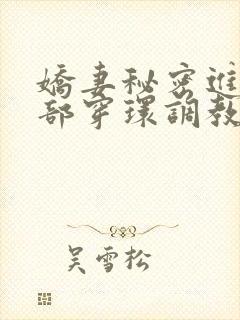 嬌妻秘密進
部穿環調教
吴雪松